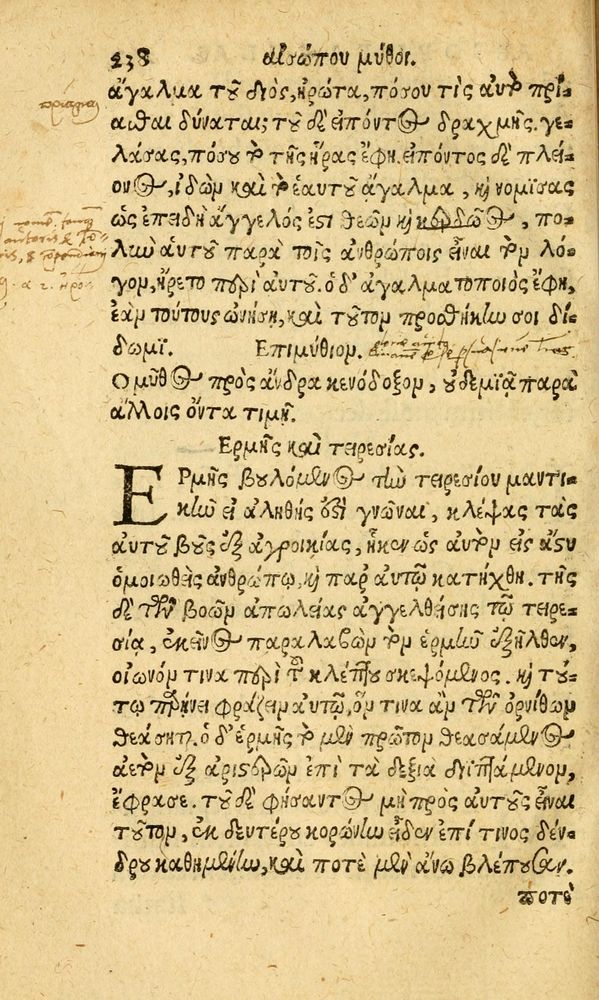 238 αἰσώπου μῦθοι.
ἄγαλμα τοῦ Διὸς, ἠρώτα, πόσου τὶς αὐτὸ πρί-
ασθαι δύναται; τοῦ δὲ εἰπόντος δραχμῆς. γε-
λάσας, πόσου τὸ τῆς ἥρας ἔφη. εἰπόντος δὲ πλεί-
ονος, ἰδὼν καὶ τὸ ἑαυτοῦ ἄγαλμα, καὶ νομίσας
ὡς ἐπειδὴ ἄγγελός ἐστι θεῶν καὶ κερδῷος, πο-
λὺν αὑτοῦ παρὰ τοῖς ἀνθρώποις εἶναι τὸν λό-
γον, ἤρετο περὶ αὐτοῦ. ὁ δ' ἀγαλματοποιὸς ἔφη,
ἐὰν τούτους ὠνήσῃ, καὶ τοῦτον προσθήκην σοι δί-
δωμι. Επιμύθιον.
Ο μῦθος πρὸς ἄνδρα κενόδοξον, οὐδεμιᾷ παρὰ
ἄλλοις ὄντα τιμῇ.
Ερμῆς καὶ τειρεσίας.
ΕΡμῆς βουλόμενος τὴν τειρεσίου μαντι-
κὴν εἰ ἀληθής ἐστι γνῶναι, κλέψας τὰς
αὐτοῦ βοῦς ἐξ ἀγροικίας, ἧκεν ὡς αὐτὸν εἰς ἄστυ
ὁμοιωθεὶς ἀνθρώπῳ, καὶ παρ' αὐτῷ κατήχθη. τῆς
δὲ τῶν βοῶν ἀπωλείας ἀγγελθείσης τῷ τειρε-
σίᾳ, ἐκεῖνος παραλαβὼν τὸν ἑρμῆν ἐξῆλθεν,
οἰωνόν τινα περὶ τοῦ κλέπτου σκεψόμενος. καὶ τού-
τῳ παρῄνει φράζειν αὐτῷ, ὅν τινα ἂν τῶν ὀρνίθων
θεάσηται. ὁ δ' ἑρμῆς τὸ μὲν πρῶτον θεασάμενος
ἀετὸν ἐξ ἀριστερῶν ἐπὶ τὰ δεξιὰ διϊπτάμενον,
ἔφρασε. τοῦ δὲ φήσαντος μὴ πρὸς αὐτοὺς εἶναι
τοῦτον, ἐκ δευτέρου κορώνην εἶδεν ἐπί τινος δέν-
δρου καθημένην, καὶ ποτὲ μὲν ἄνω βλέπουσαν.
ποτὲ